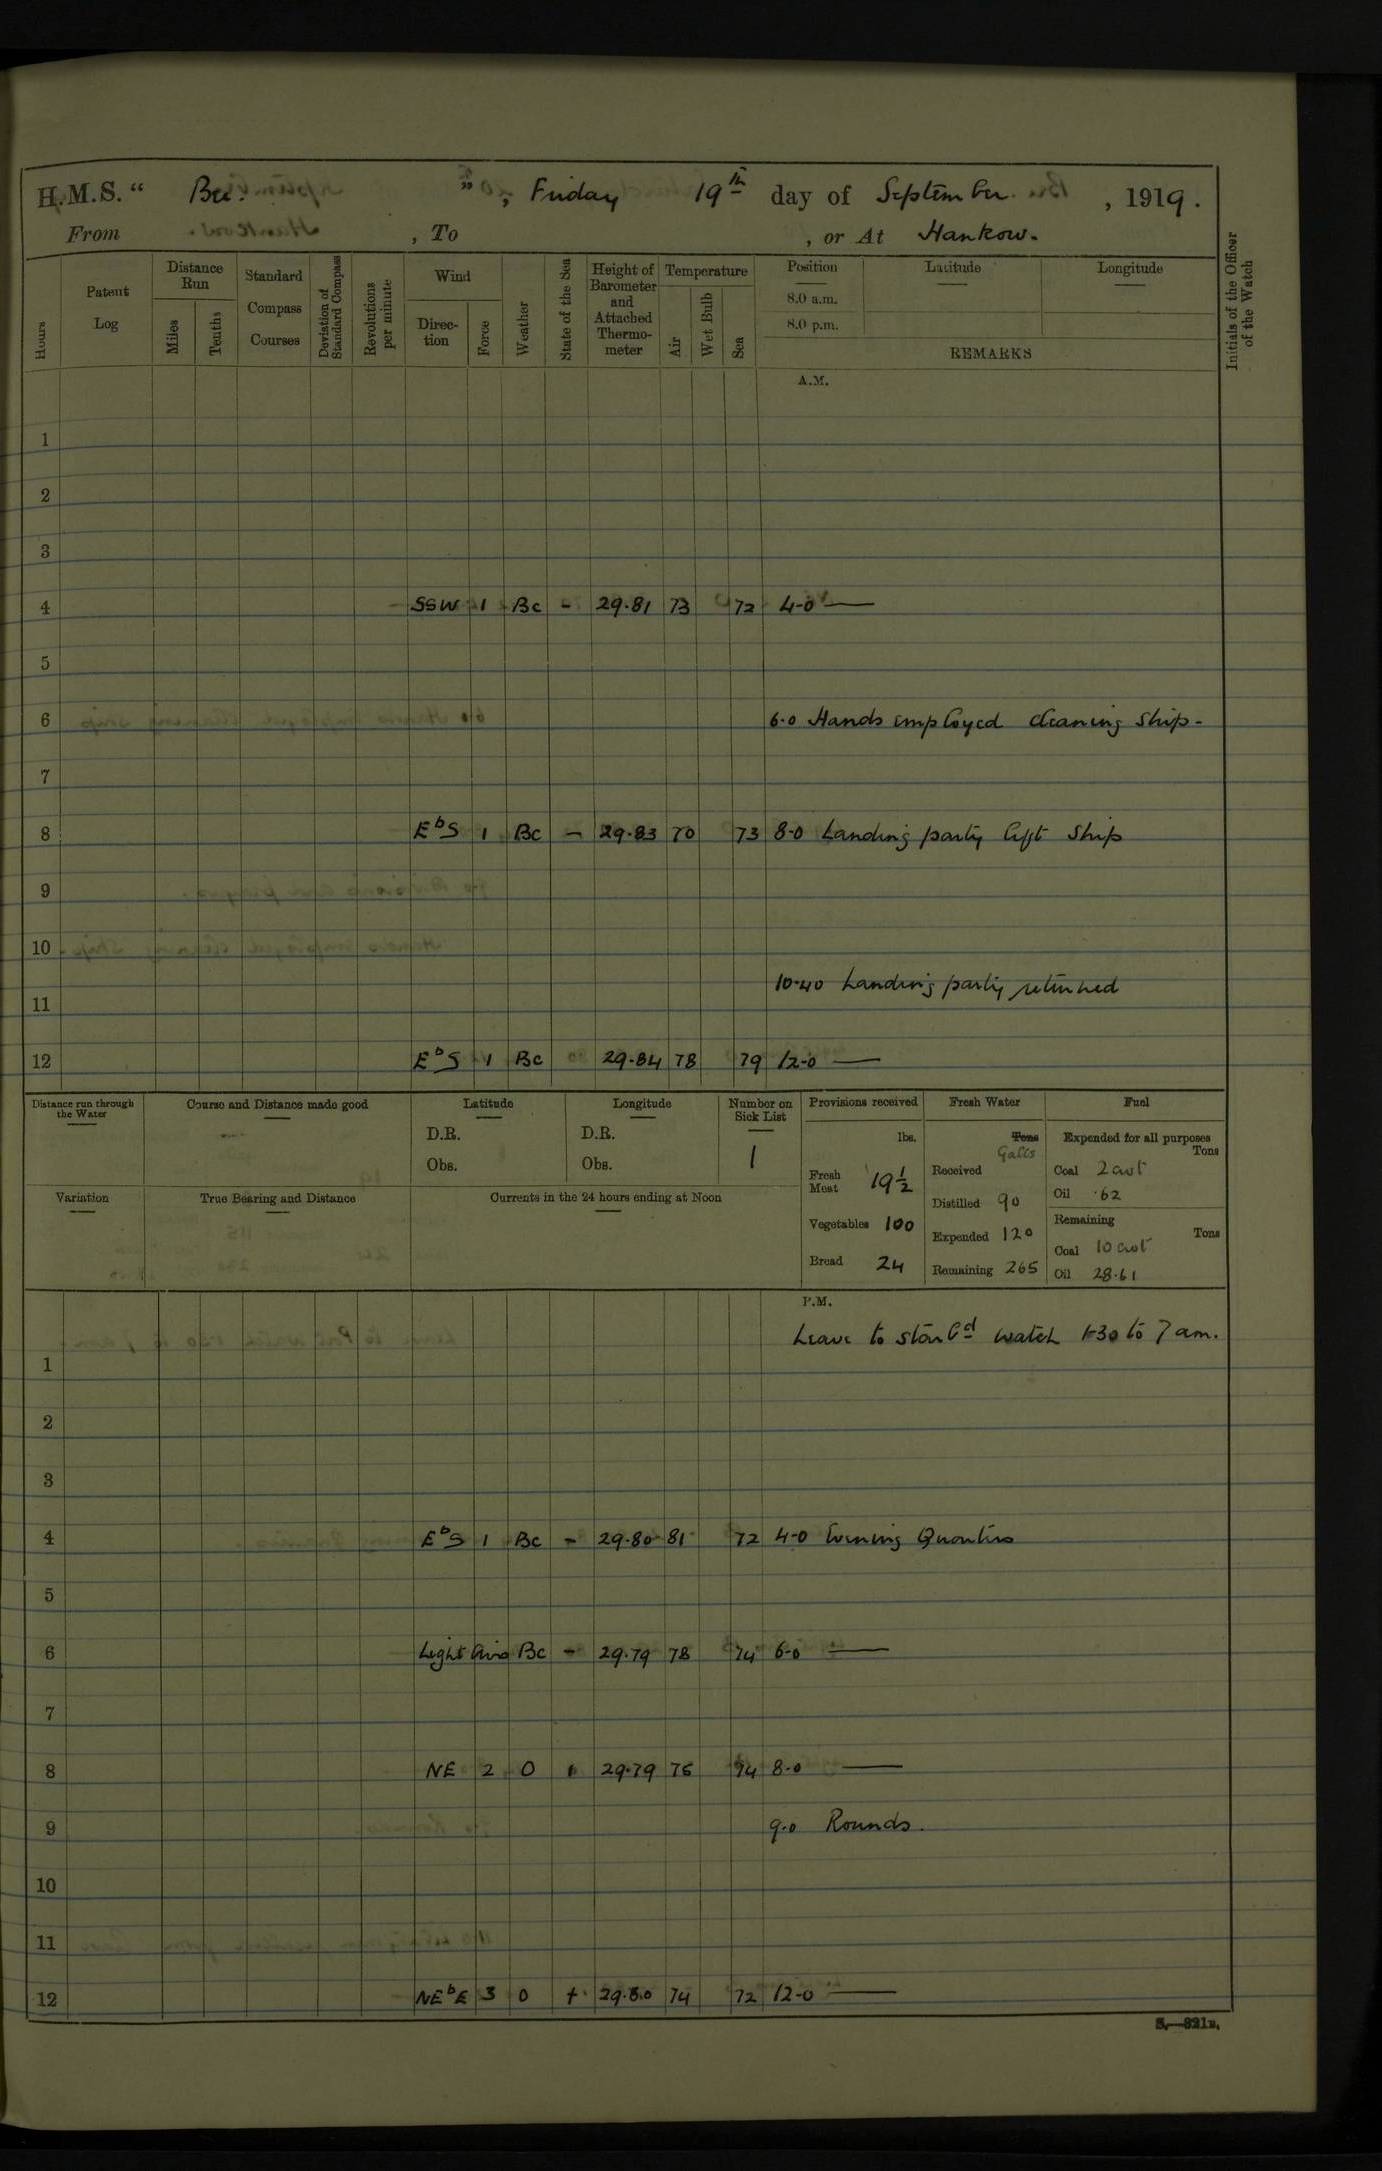 H.M.S. " Bee. ", Friday 19th day of September, 1919.
From , To , or At Hankow.
Hours
Patent Log
Distance Run
Miles
Tenths
Standard Compass Courses
Deviation of Standard Compass
Revolutions per minute
Wind
Direction
Force
Weather
State of the Sea
Height of Barometer and Attached Thermometer
Temperature
Air
Wet Bulb
Sea
Position
8.0 a.m.
8.0 p.m.
Latitude
Longitude
REMARKS
Initials of the Officer of the Watch
A.M.
1
2
3
4 SSW 1 Bc - 29.81 73 72 4-0 —
5
6 6.0 Hands employed cleaning ship-
7
8 EbS 1 Bc - 29.83 70 73 8-0 Landing party left ship
9
10
10-40 Landing party returned
11
12 EbS 1 Bc 29.84 78 79 12-0 —
Distance run through the Water
Course and Distance made good
Latitude
D.R.
Obs.
Longitude
D.R.
Obs.
Number on Sick List
1
Variation
True Bearing and Distance
Currents in the 24 hours ending at Noon
Provisions received
lbs.
Fresh Meat 19½
Vegetables 100
Bread 24
Fresh Water
Tons Galls
Received
Distilled 90
Expended 120
Remaining 265
Fuel
Expended for all purposes
Tons
Coal 2 cwt
Oil .62
Remaining
Tons
Coal 10 cwt
Oil 28.61
P.M.
Leave to starbd watch 1-30 to 7 am.
1
2
3
4 EbS 1 Bc - 29.80 81 72 4-0 Evening Quarters
5
6 Light airs Bc - 29.79 78 74 6-0 —
7
8 NE 2 O 1 29.79 76 74 8-0 —
9 9.0 Rounds.
10
11
12 NEbE 3 O + 29.80 74 72 12-0 —
S.—321B.